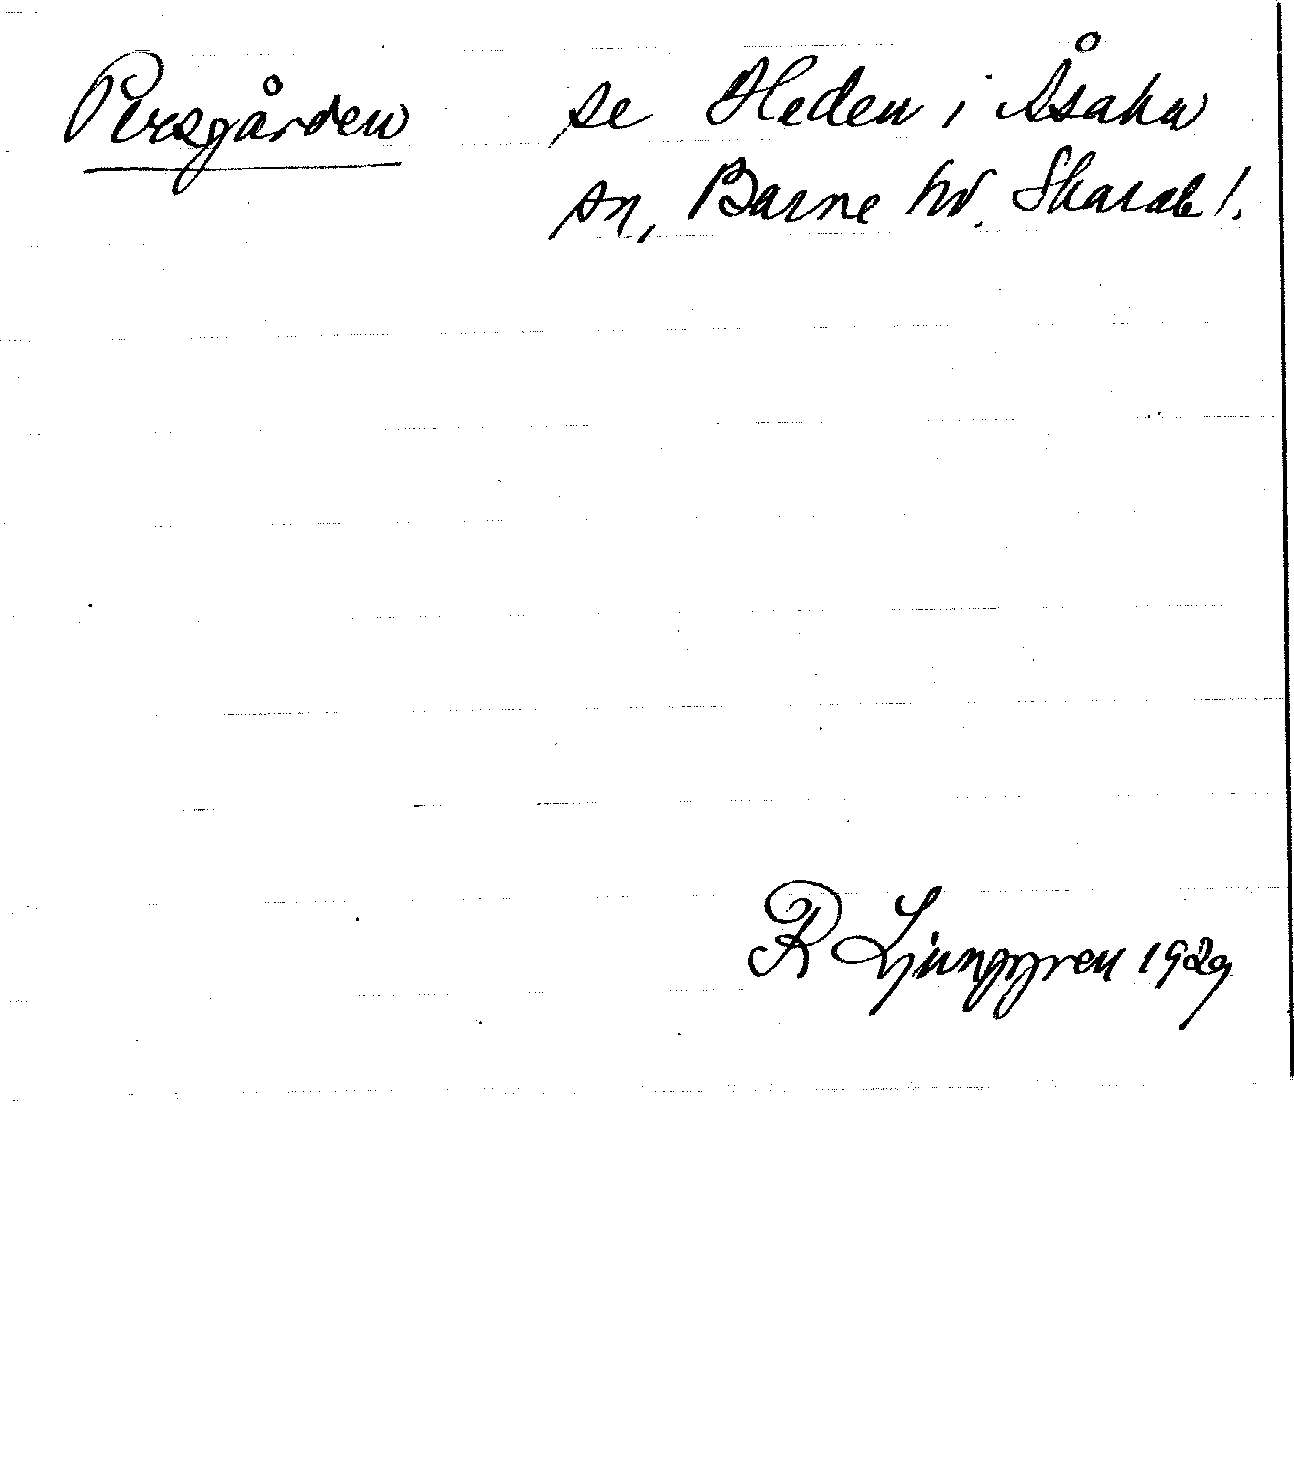 Persgården se Heden i Åsaka
sn, Barne hd. Skarab l.
R Ljunggren 1929